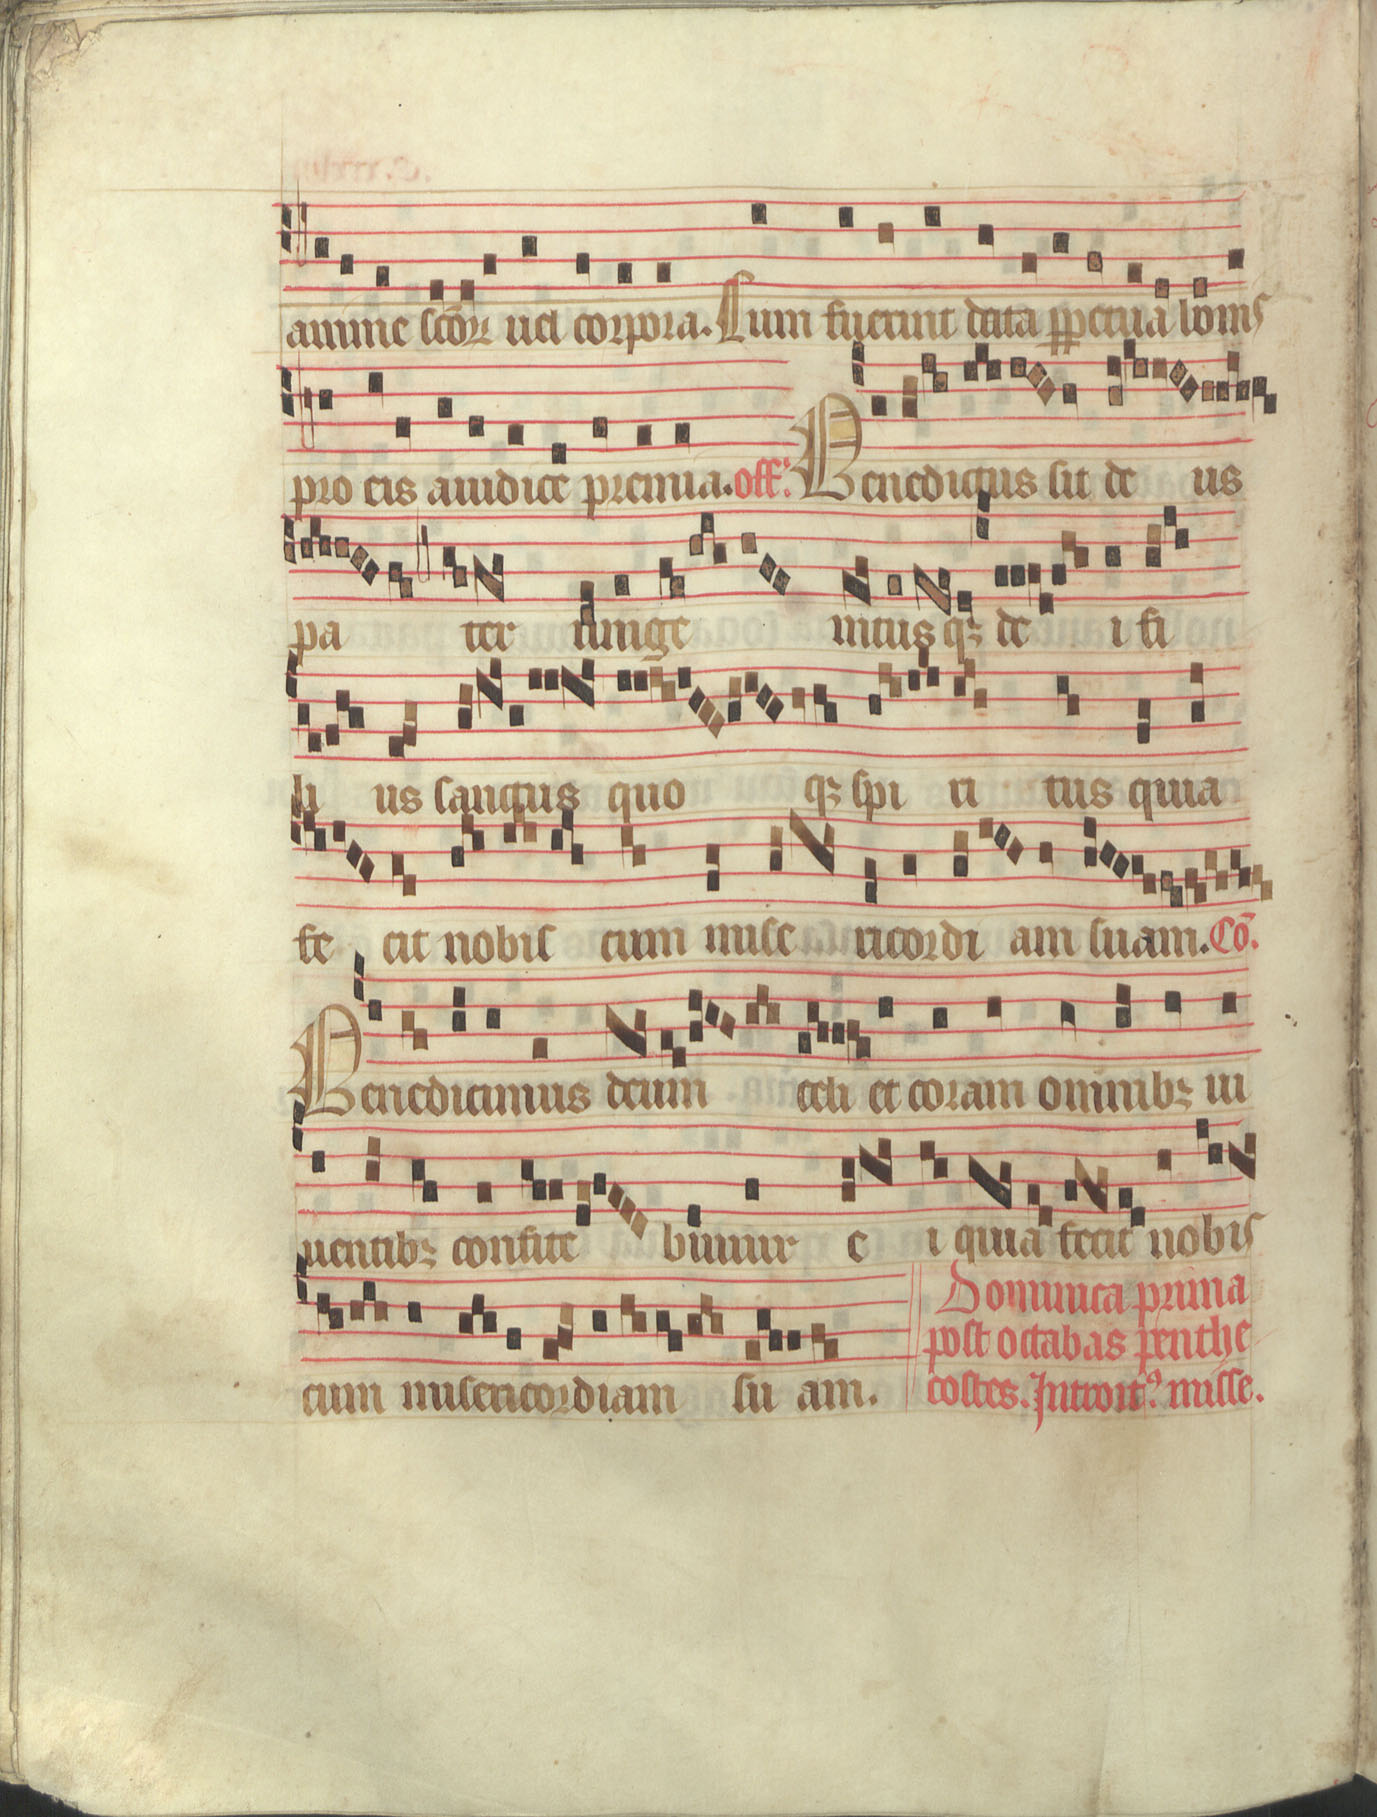 anime scōꝝ uel corpora. Cum fuerint data ꝑpetua bonis
pro eis audite premia. off. Benedictus sit de us
pa ter unige nitus qꝫ de i fi
li us sanctus quo qꝫ spi ri tus quia
fe cit nobis cum mise ricordi am suam. Cō.
Benedicimus deum celi et coram omnibꝫ ui
uentibꝫ confite bimur e i quia fecit nobis
Dominica prima
post octabas penthe
cum misericordiam su am. costes. Introitꝰ misse.